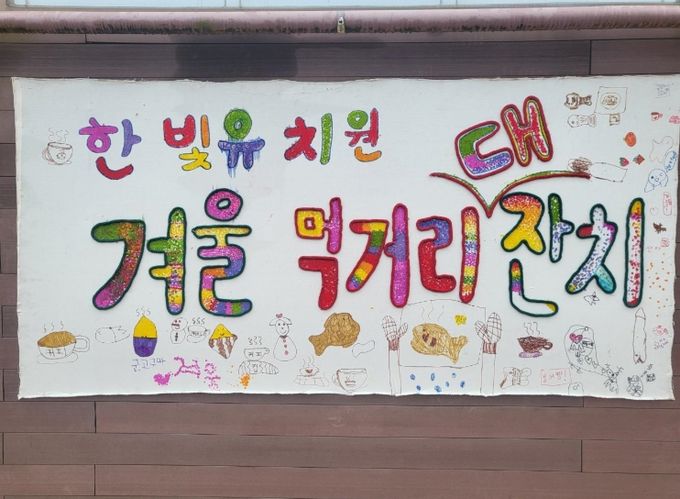 한빛유치원
겨울 먹거리 대잔치
커피
군고구마
겨울